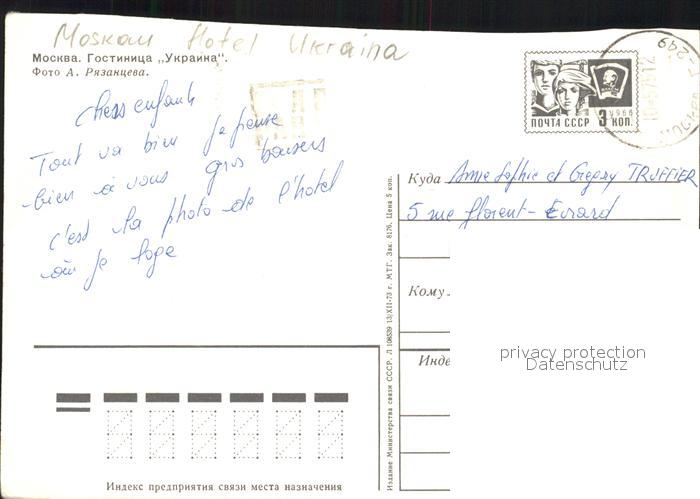 Moskau Hotel Ukraina
Москва. Гостиница „Украина“.
Фото А. Рязанцева.
chers enfants
Tout va bien je pense
bien à vous gros baisers
c'est la photo de l'hotel
où je loge
ПОЧТА СССР 3 КОП.
1966
Куда Anne Sophie et Gregory TRUFFIER
5 rue Florent-Evrard
Кому
Инде
privacy protection
Datenschutz
Издание Министерства связи СССР. Л 108539 13/XII-73 г. МТГ. Зак. 8176. Цена 5 коп.
Индекс предприятия связи места назначения